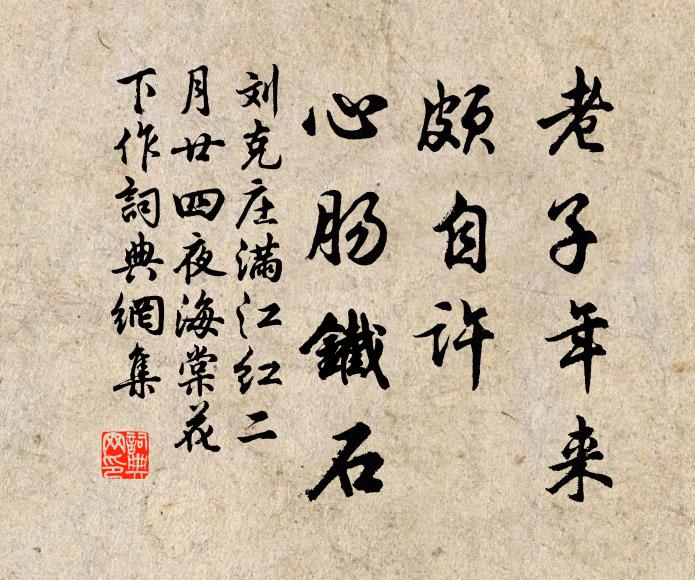 老子年来
颇自许
心肠鐵石
刘克庄满江红二
月廿四夜海棠花
下作詞典網集
詞典网印